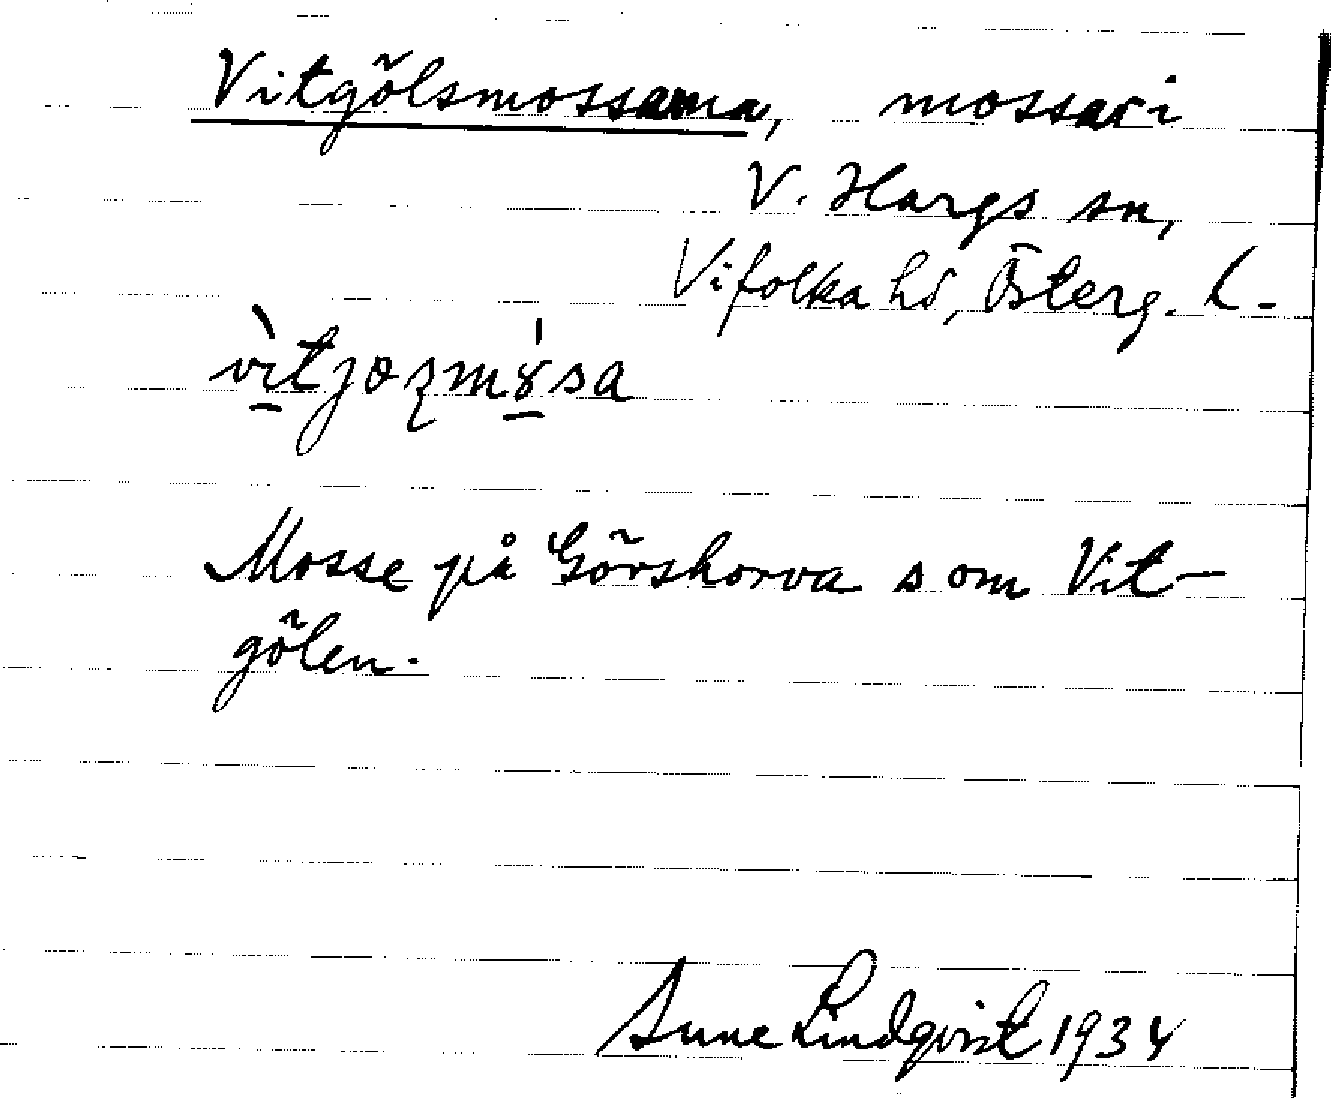 Vitgölsmossarna, mossar i
V. Hargs sn,
Vifolka hd, Österg. l.
vìtjozmɤ́sa
Mosse på Görshorva som Vit-
gölen.
Sune Lindqvist 1934